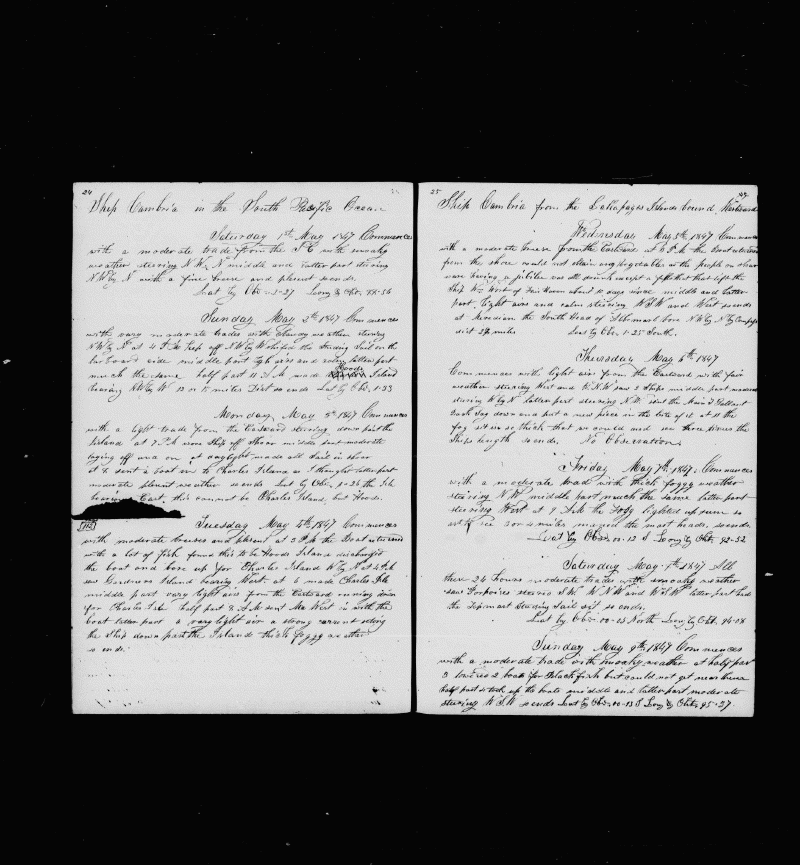 24
Ship Cambria in the South Pacific Ocean
Saturday 1st May 1847 Commences
with a moderate trade from the S E with smoaky
weather steering N W. N middle and latter part steering
N W by N with a fine breese and plesent so ends.
Lat by Obs 2-27 Long by Chr
Sunday May 2th 1847 Commences
with very moderate trades with weather steering
N W by N at 4 P.M keep off N W by W shifted the studing sail on the
larboard side middle part light airs and latter part
much the same half part 10 A M made Hoods Island
bearing N W by W 12 or 15 miles Dist so ends Lat by Obs 1-33
Monday May 3th 1847 Commences
with a light trade from the Eastward steering down past the
Island at 7 P.M wore Ship off shore middle part moderate
laying off and on at daylight made all sail in shore
at 8 sent a boat in to Charles Island as I thought latter part
moderate plesent weather so ends Lat by Obs 1-26 the Isl
bearing East. this cannot be Charles Island, but Hoods.
Tuesday May 4th 1847 Commences
with moderate breeses and plesent at 3 P.M the Boat returned
with a lot of fish found this to be Hoods Island discharged
the boat and bore up for Charles Island W by N at 4 P.M
saw Gardners Island bearing West. at 6 made Charles Isle
middle part very light airs from the Eastward running down
for Charles Isle half part 8 A M sent Mr West in with the
boat latter part a very light air a strong current seting
the Ship down past the Island thick foggy weather
so ends.
25
Ship Cambria from the Gallapagos Islands bound Westward
Wednesday May 5th 1847 Commences
with a moderate breese from the Eastward at 6 P.M the Boat returned
from the shore could not obtain any vegetables as the people on shore
ware having a jubilee was all drunk except a few that left the
Ship Wm West of Fair Haven about 10 days since middle and latter
part light airs and calm steering W S W and West so ends
at Meridian the South head of Albemarl bore N W by N by Compass
dist 24 miles Lat by Obs 1-25 South.
Thursday May 6th 1847
Commences with light air from the Eastward with fair
weather steering West and W N W saw 2 Ships middle part moderate
steering W by N latter part steering N W. sent the Main T Gallant
back stay down and put a new piece in the bite of it at 11 the
fog set in so thick that we could not see three times the
Ships length so ends. No Observation
Friday May 7th 1847. Commences
with a moderate trade with thick foggy weather
steering N W middle part much the same latter part
steering West at 9 A.M the Fogg lighted up soon so
as to see 3 or 4 miles maned the mast heads. so ends
Lat by Obs 00-12 S Long by Chr. 92-52
Saturday May 7th 1847 All
these 24 hours moderate trades with smoaky weather
saw Porpoises steering N W W N W and W S W latter part had
the Topmast studing sail set so ends.
Lat by Obs 00-05 North Long by Chr. 94-08
Sunday May 9th 1847 Commences
with a moderate trade with smoaky weather at half past
3 lowered 2 boats for Blackfish but could not get near them
half past 4 took up the boats middle and latter part moderate
steering W S W so ends Lat by Obs 00-13 S Long by Chr 95-27